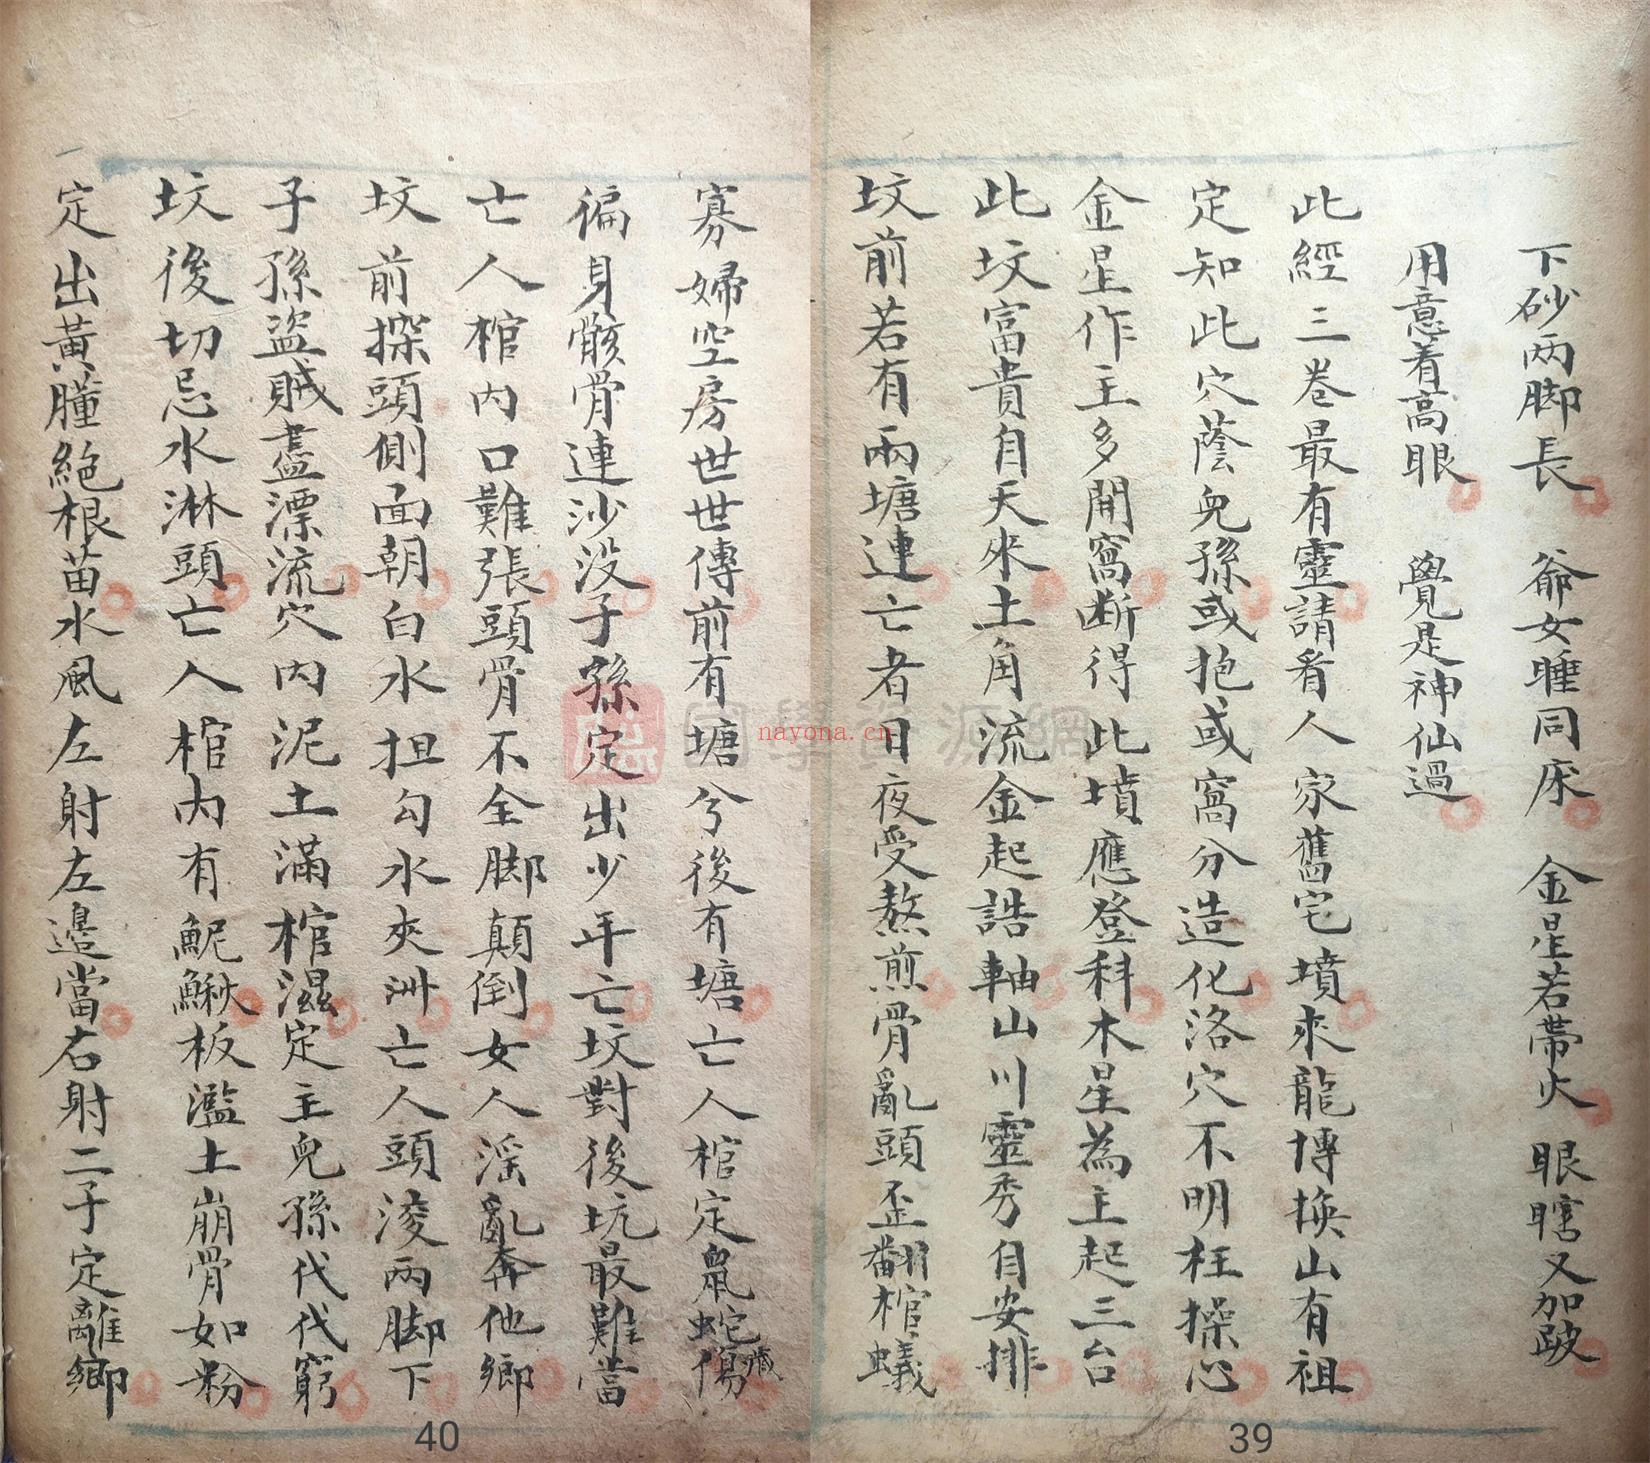 下砂两脚長爺女睡同床金星若帶火眼瞎又加跛
用意着高眼覺是神仙過
此經三卷最有靈請看人家舊宅墳來龍博換山有祖
定知此穴蔭兒孫或抱或窩分造化洛穴不明枉操心
金星作主多開窩断得此墳應登科木星為主起三台
此坟富貴自天來土角流金起誥軸山川靈秀自安排
坟前若有兩塘連亡者日夜受熬煎骨亂頭歪翻棺蟻
寡婦空房世世傳前有塘兮後有塘亡人棺定鼠蛇傷藏
徧身骸骨連沙没子孫定出少年亡坟對後坑最難當
亡人棺内口難張頭骨不全脚顛倒女人淫亂奔他鄉
坟前探頭側面朝白水担勾水夾洲亡人頭淩两脚下
子孫盜賊盡漂流穴内泥土滿棺濕定主兒孫代代窮
坟後切忌水淋頭亡人棺内有鮀鰍板濫土崩骨如粉
定出黃腫絶根苗水風左射左邉當右射二子定離鄉
39
40
國學資源網
nayona.cn